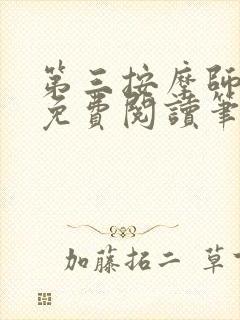 第三按摩師
免費閱讀筆
加藤拓二 草